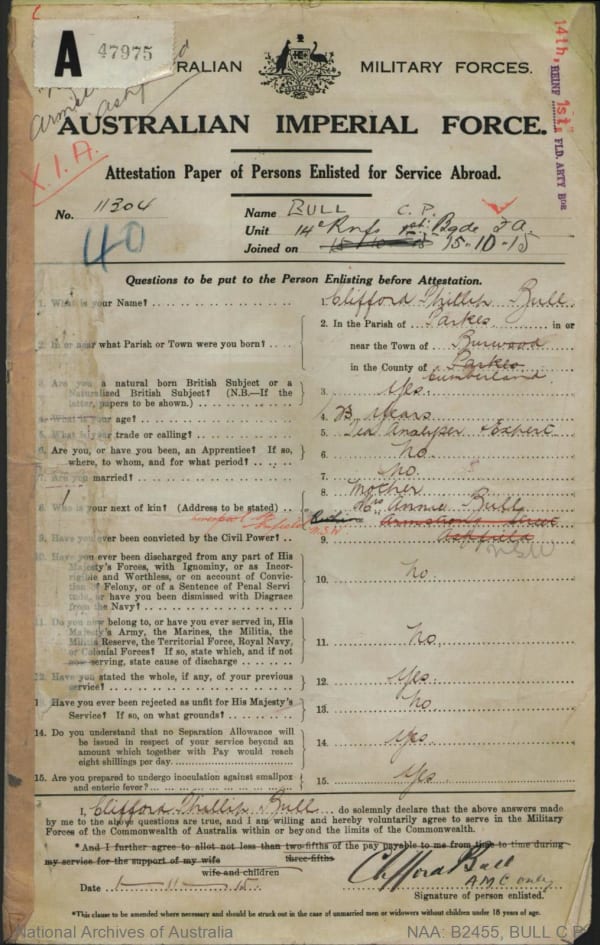 A 47975
RALIAN MILITARY FORCES.
14th REINF 1st FLD. ARTY BDE
AUSTRALIAN IMPERIAL FORCE.
X.I.A.
Attestation Paper of Persons Enlisted for Service Abroad.
No. 11304
Name BULL C. P.
40
Unit 14th Rnfs 1st Bgde F A.
Joined on 15-10-15
Questions to be put to the Person Enlisting before Attestation.
1. What is your Name?
1. Clifford Phillip Bull
2. In or near what Parish or Town were you born?
2. In the Parish of Parkes in or
near the Town of Burwood
in the County of Parkes
Cumberland
3. Are you a natural born British Subject or a
Naturalized British Subject? (N.B.—If the
latter, papers to be shown.)
3. Yes.
4. What is your age?
4. years
5. What is your trade or calling?
5. Tea Analyser & Expert
6. Are you, or have you been, an Apprentice? If so,
where, to whom, and for what period?
6. no
7. Are you married?
7. no.
8. Who is your next of kin? (Address to be stated)
8. Mother
Mrs Annie Bull
Liverpool Rd Ashfield N.S.W
Armstrong Street
Ashfield
NSW
9. Have you ever been convicted by the Civil Power?
9.
10. Have you ever been discharged from any part of His
Majesty's Forces, with Ignominy, or as Incor-
rigible and Worthless, or on account of Convic-
tion of Felony, or of a Sentence of Penal Servi-
tude, or have you been dismissed with Disgrace
from the Navy?
10. no
11. Do you now belong to, or have you ever served in, His
Majesty's Army, the Marines, the Militia, the
Militia Reserve, the Territorial Force, Royal Navy,
or Colonial Forces? If so, state which, and if not
now serving, state cause of discharge
11. no
12. Have you stated the whole, if any, of your previous
service?
12. Yes.
13. Have you ever been rejected as unfit for His Majesty's
Service? If so, on what grounds?
13. no
14. Do you understand that no Separation Allowance will
be issued in respect of your service beyond an
amount which together with Pay would reach
eight shillings per day.
14. Yes
15. Are you prepared to undergo inoculation against smallpox
and enteric fever?
15. Yes
I, Clifford Phillip Bull do solemnly declare that the above answers made
by me to the above questions are true, and I am willing and hereby voluntarily agree to serve in the Military
Forces of the Commonwealth of Australia within or beyond the limits of the Commonwealth.
*And I further agree to allot not less than two-fifths of the pay payable to me from time to time during
three-fifths
my service for the support of my wife
wife and children
Clifford Bull
AMC only
Date 1-11-15.
Signature of person enlisted.
*This clause to be amended where necessary and should be struck out in the case of unmarried men or widowers without children under 18 years of age.
National Archives of Australia
NAA: B2455, BULL C P